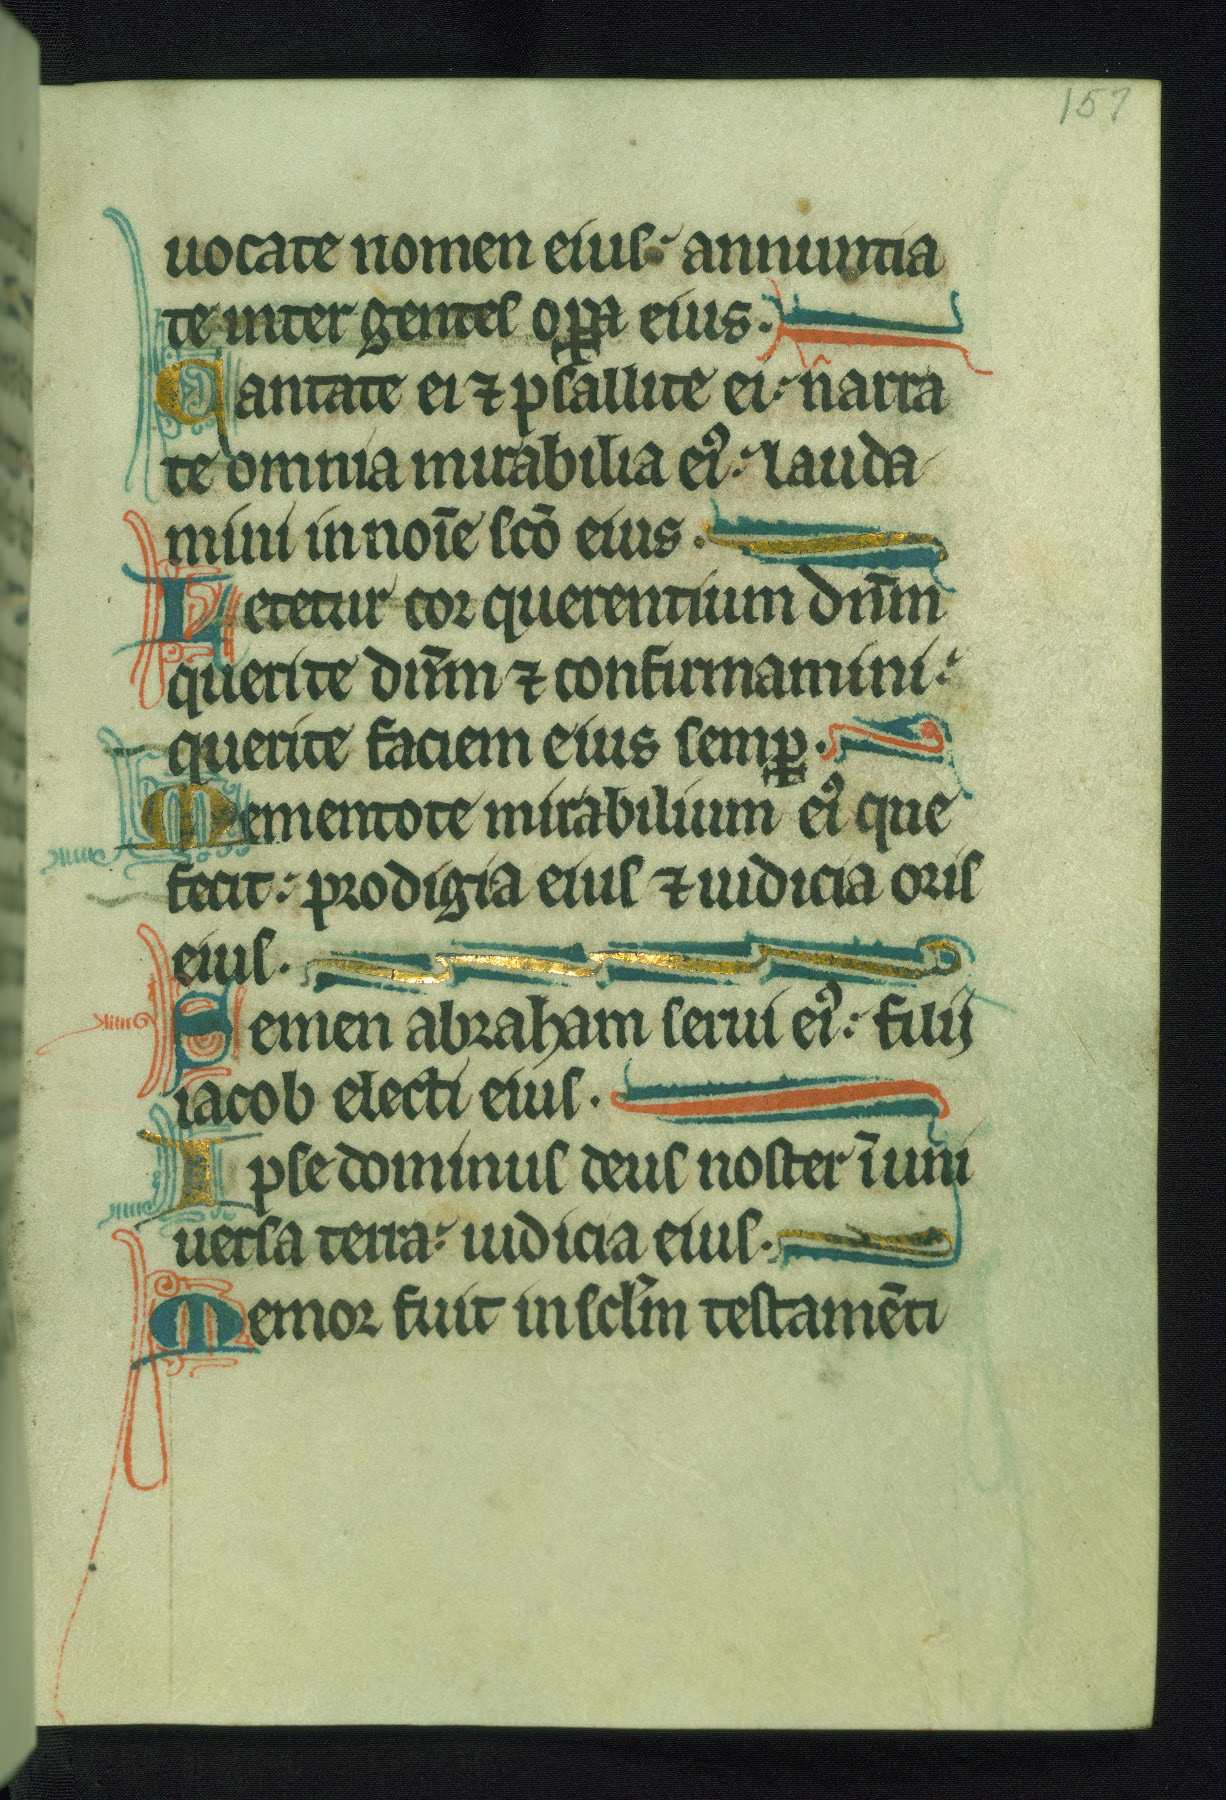 157
uocate nomen eius: annuntia
te inter gentes oꝑa eius.
Cantate ei ⁊ psallite ei: narra
te omnia mirabilia eiꝰ: lauda
mini in noīe scō eius.
Letetur cor querentium dn̄m
querite dn̄m ⁊ confirmamini:
querite faciem eius semꝑ.
Mementote mirabilium eiꝰ que
fecit: prodigia eius ⁊ iudicia oris
eius.
Semen abraham serui eiꝰ: filij
iacob electi eius.
Ipse dominus deus noster ī uni
uersa terra: iudicia eius.
Memor fuit in scl̄m testamēti